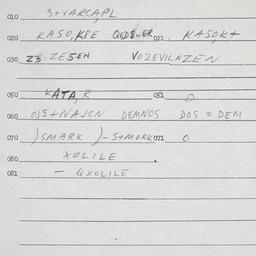 010 S+VARCAPL
020 KASO,K8E QEDSWER 021 KASOK+
030 Z3 ZESEN VOZEVILNZEN
050 KATA,R 051 O
060 OJS+NAJCN DEMNOS DOS = DEM
070 )SMARK )-S+MORK 071 O
080 XOLILE .
081 - QXOLILE